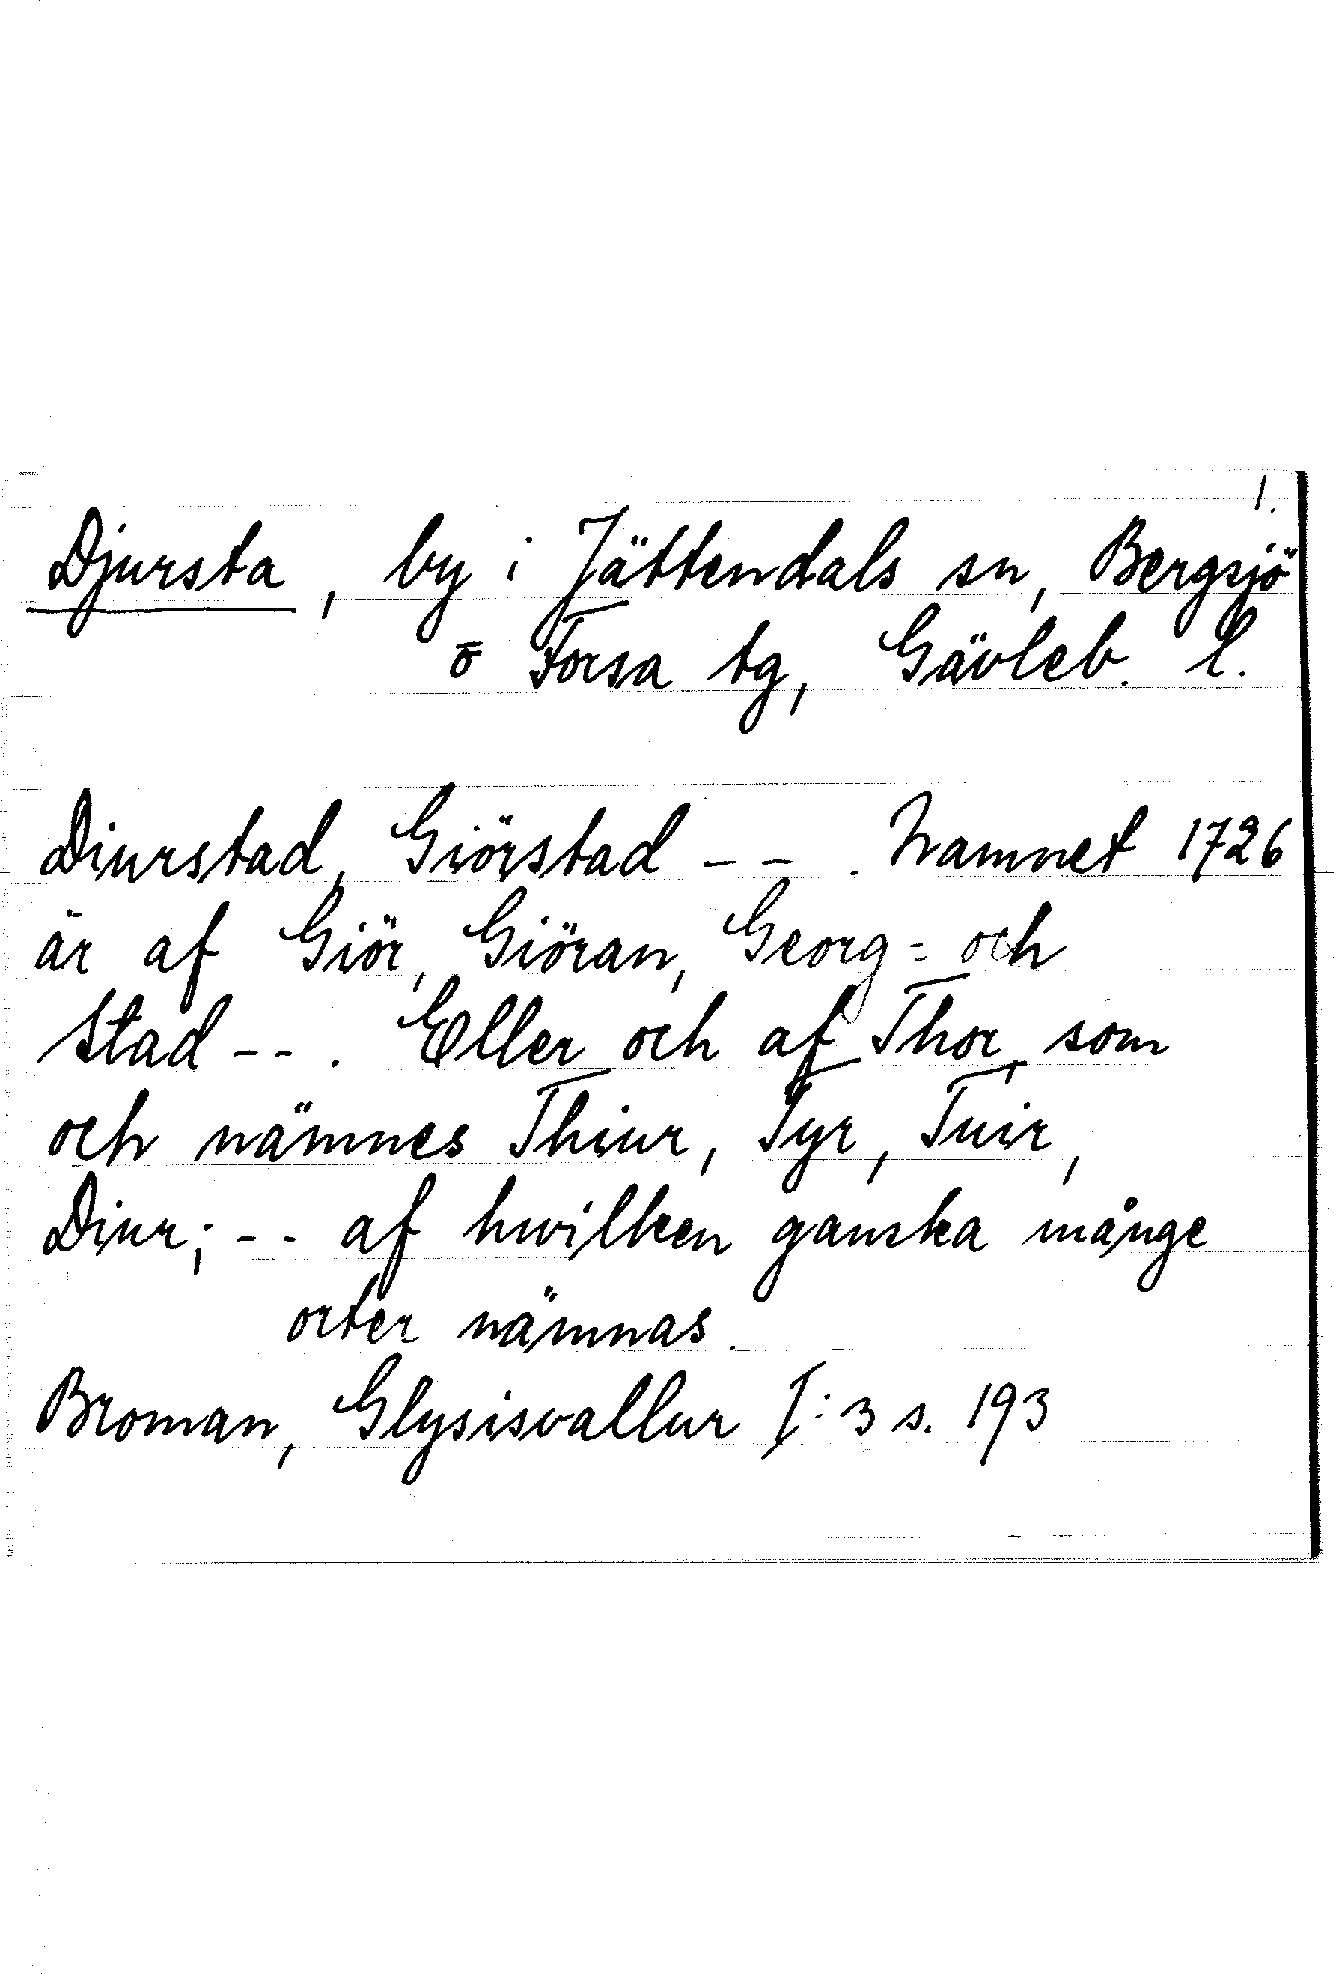 1.
Djursta, by i Jättendals sn, Bergsjö
o Forsa tg, Gävleb. l.
Diurstad, Giörstad -- . Namnet 1726
är af Giör, Giöran, Georg = och
Stad -- . Eller och af Thor, som
och nämnes Thiur, Tyr, Tuir,
Diur; -- af hwilken ganska månge
orter nämnas.
Broman, Glysisvallur I:3 s. 193